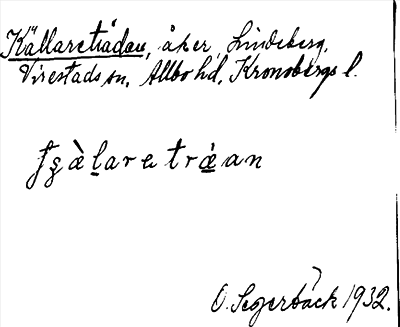 Källareträdan, åker, Lindeberg,
Virestads sn, Allbo hd, Kronobergs l.
O. Segerbäck 1932.